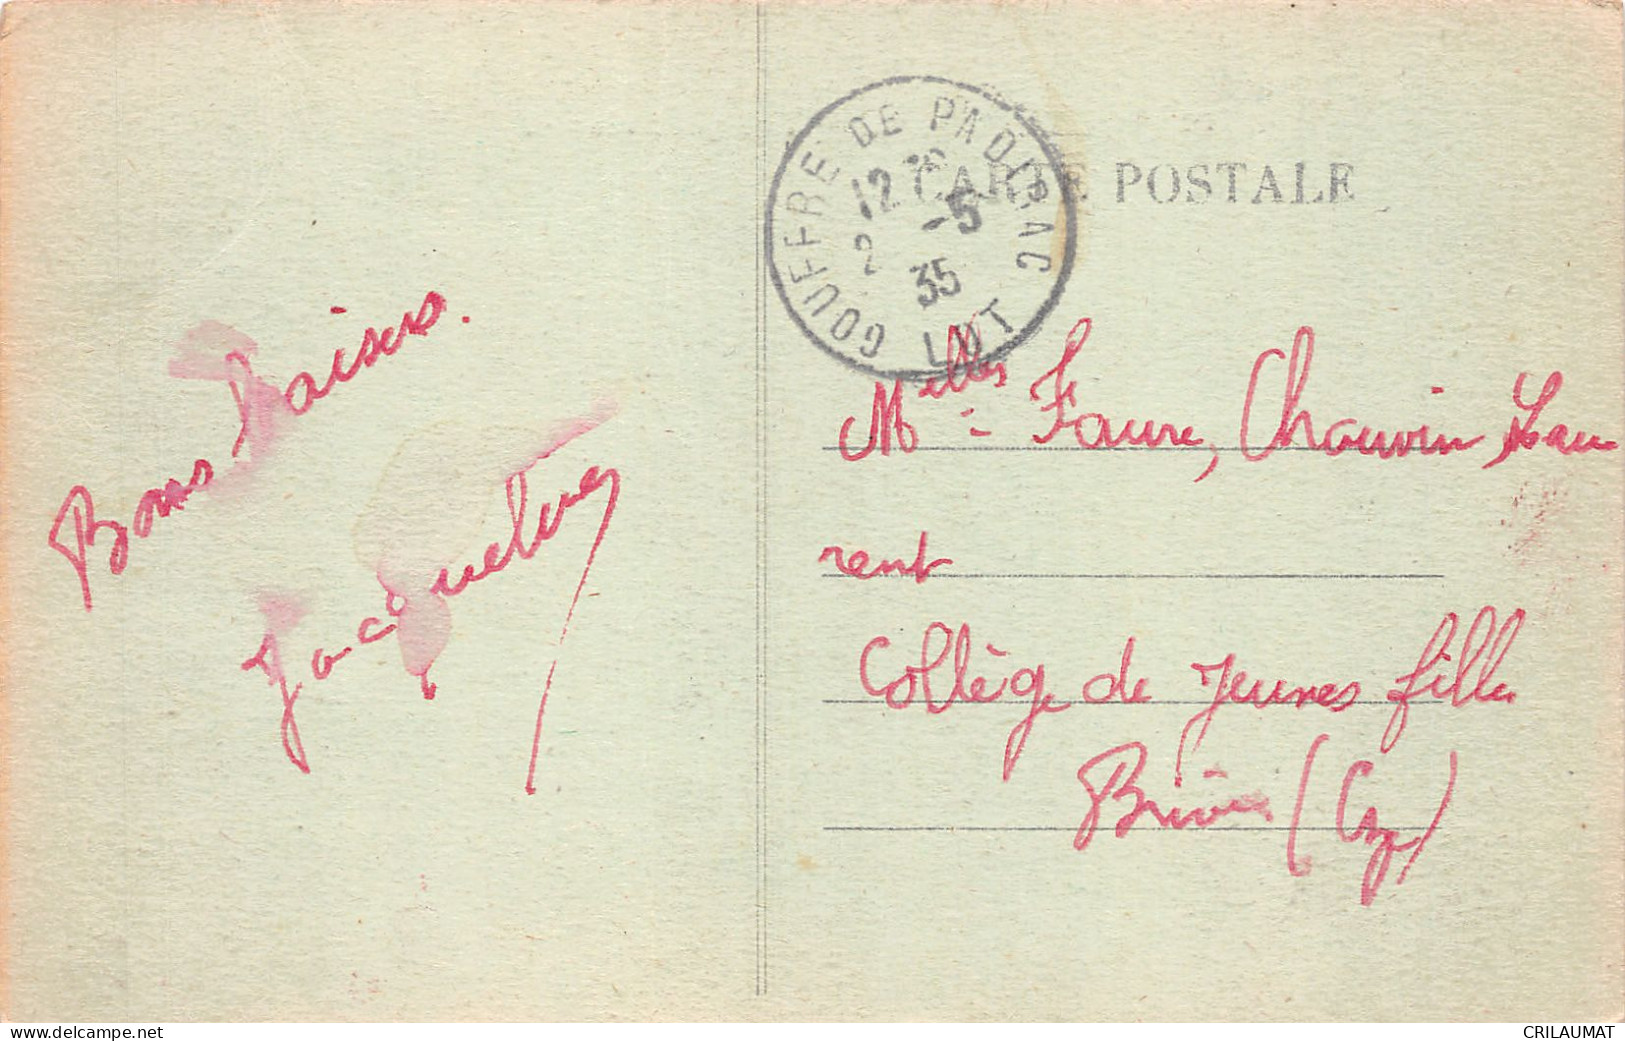 CARTE POSTALE
GOUFFRE DE PADIRAC
LOT
12 30
2 -5
35
Bons baisers.
Jacqueline
Melles Faure, Chauvin, Lau
rent
Collège de Jeunes filles
Brive (Cze)
www.delcampe.net
CRILAUMAT